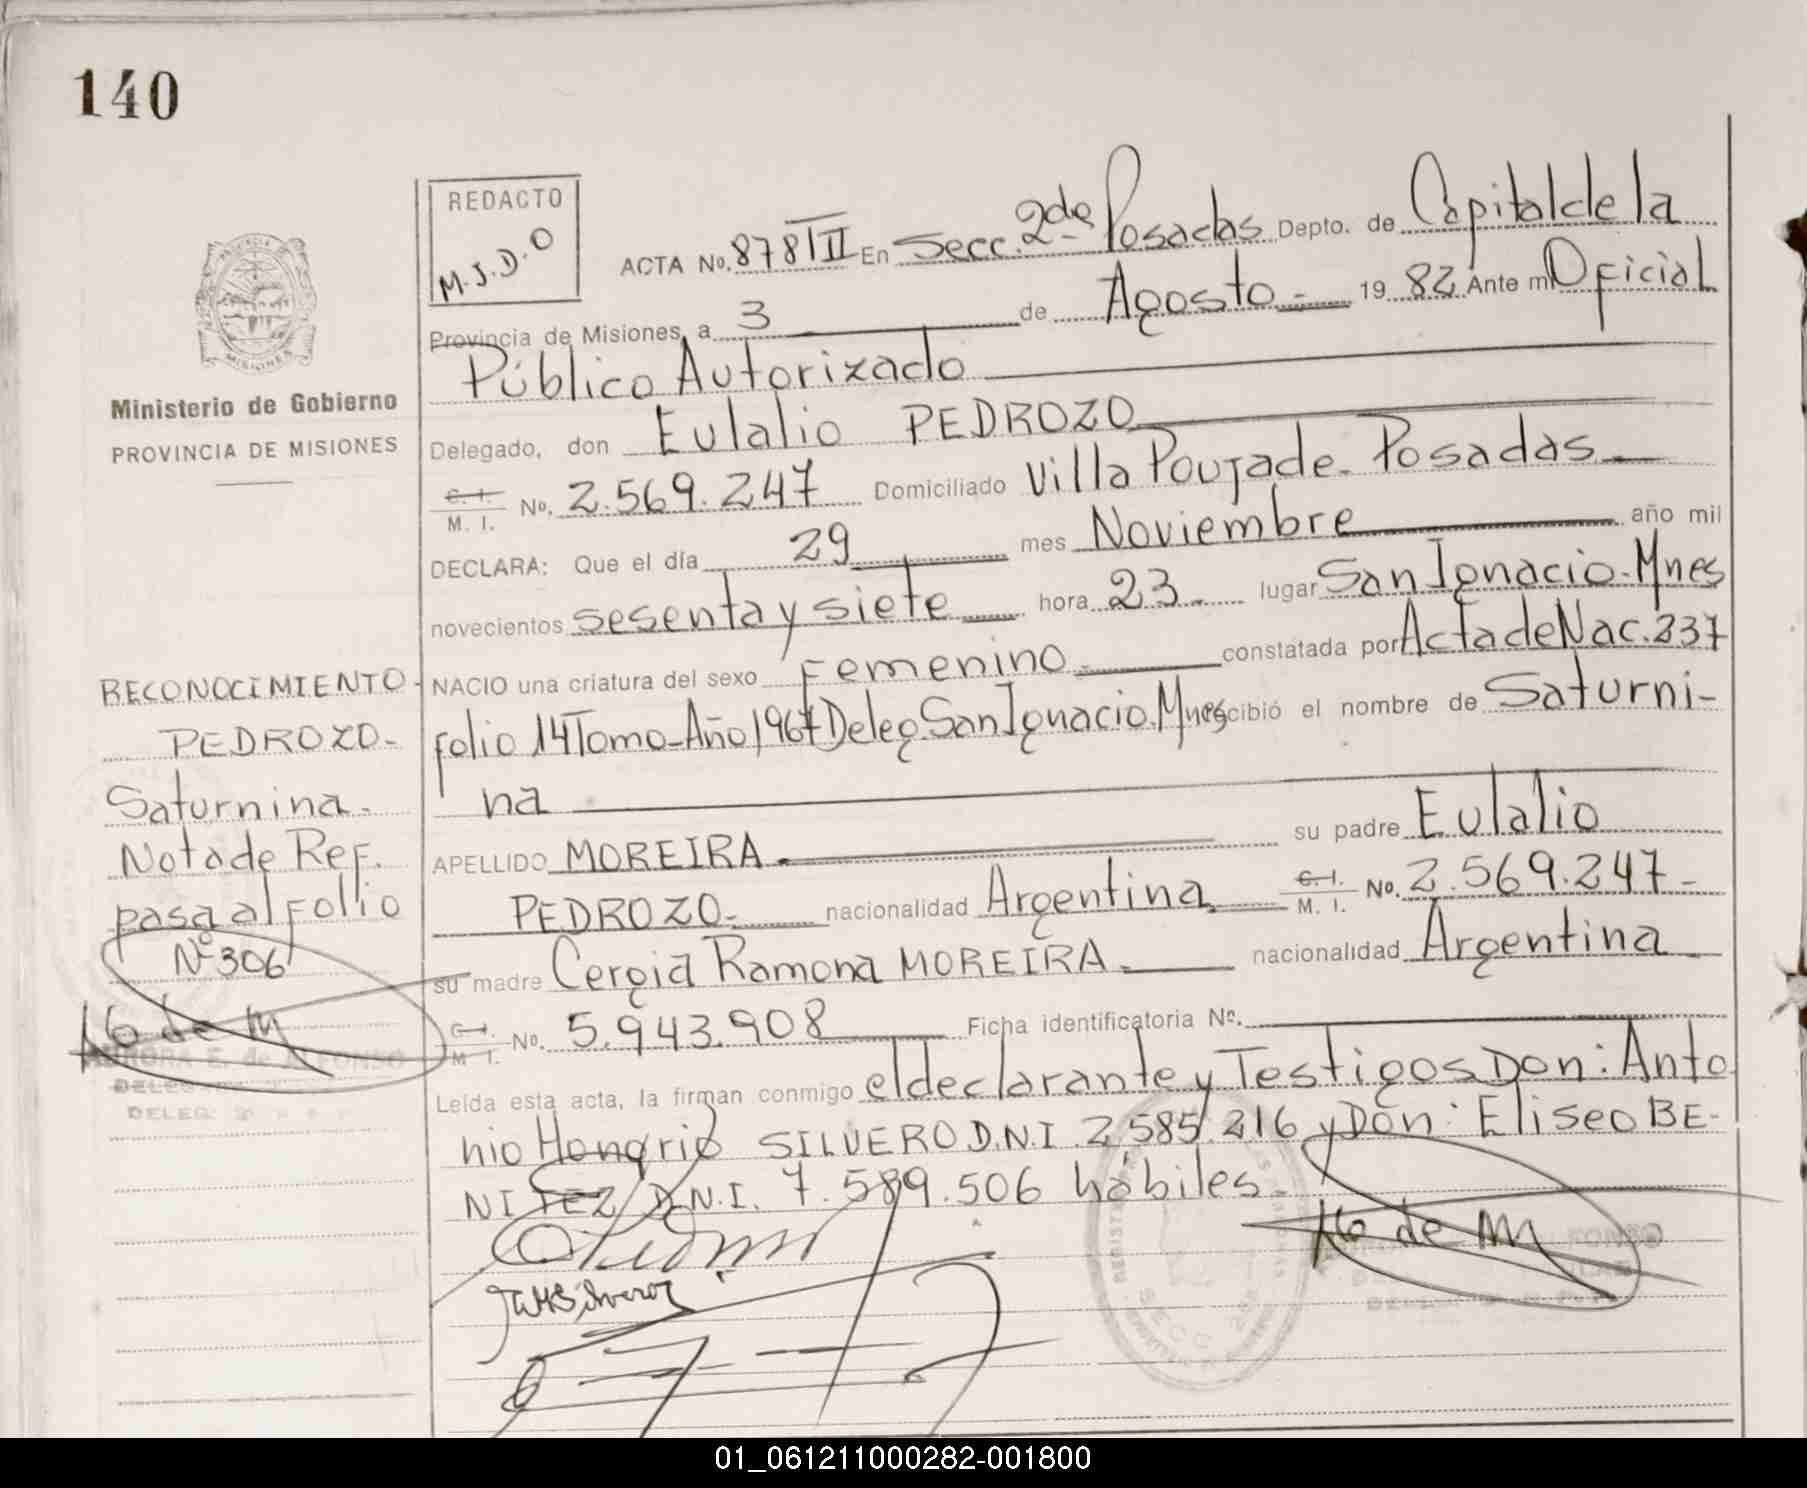 140
REDACTO
M.J.D.O
ACTA No. 878 III En Secc. 2da Posadas Depto. de Capital de la
Provincia de Misiones, a 3 de Agosto 1982 Ante mi Oficial
Público Autorizado
Ministerio de Gobierno
PROVINCIA DE MISIONES
Delegado, don Eulalio PEDROZO
C. I. M. I. No. 2.569.247 Domiciliado Villa Poujade - Posadas
DECLARA: Que el día 29 mes Noviembre año mil
novecientos sesenta y siete hora 23 lugar San Ignacio - Mnes
NACIO una criatura del sexo Femenino constatada por Acta de Nac. 237
folio 14 Tomo - Año 1967 Deleg. San Ignacio. Mnes recibió el nombre de Saturni-
na
APELLIDO MOREIRA su padre Eulalio
PEDROZO nacionalidad Argentina C. I. M. I. No. 2.569.247
su madre Cergia Ramona MOREIRA nacionalidad Argentina
C. I. M. I. No. 5.943.908 Ficha identificatoria Nº.
Leída esta acta, la firman conmigo el declarante y Testigos Don: Anto
nio Hongrio SILVERO D.N.I. 2.585.216 y Don: Eliseo BE-
NITEZ D.N.I. 7.589.506 hábiles
RECONOCIMIENTO
PEDROZO
Saturnina
Nota de Ref.
pasa al folio
Nº 306
AURORA E. de ALFONSO
SECC. 2da
01_061211000282-001800